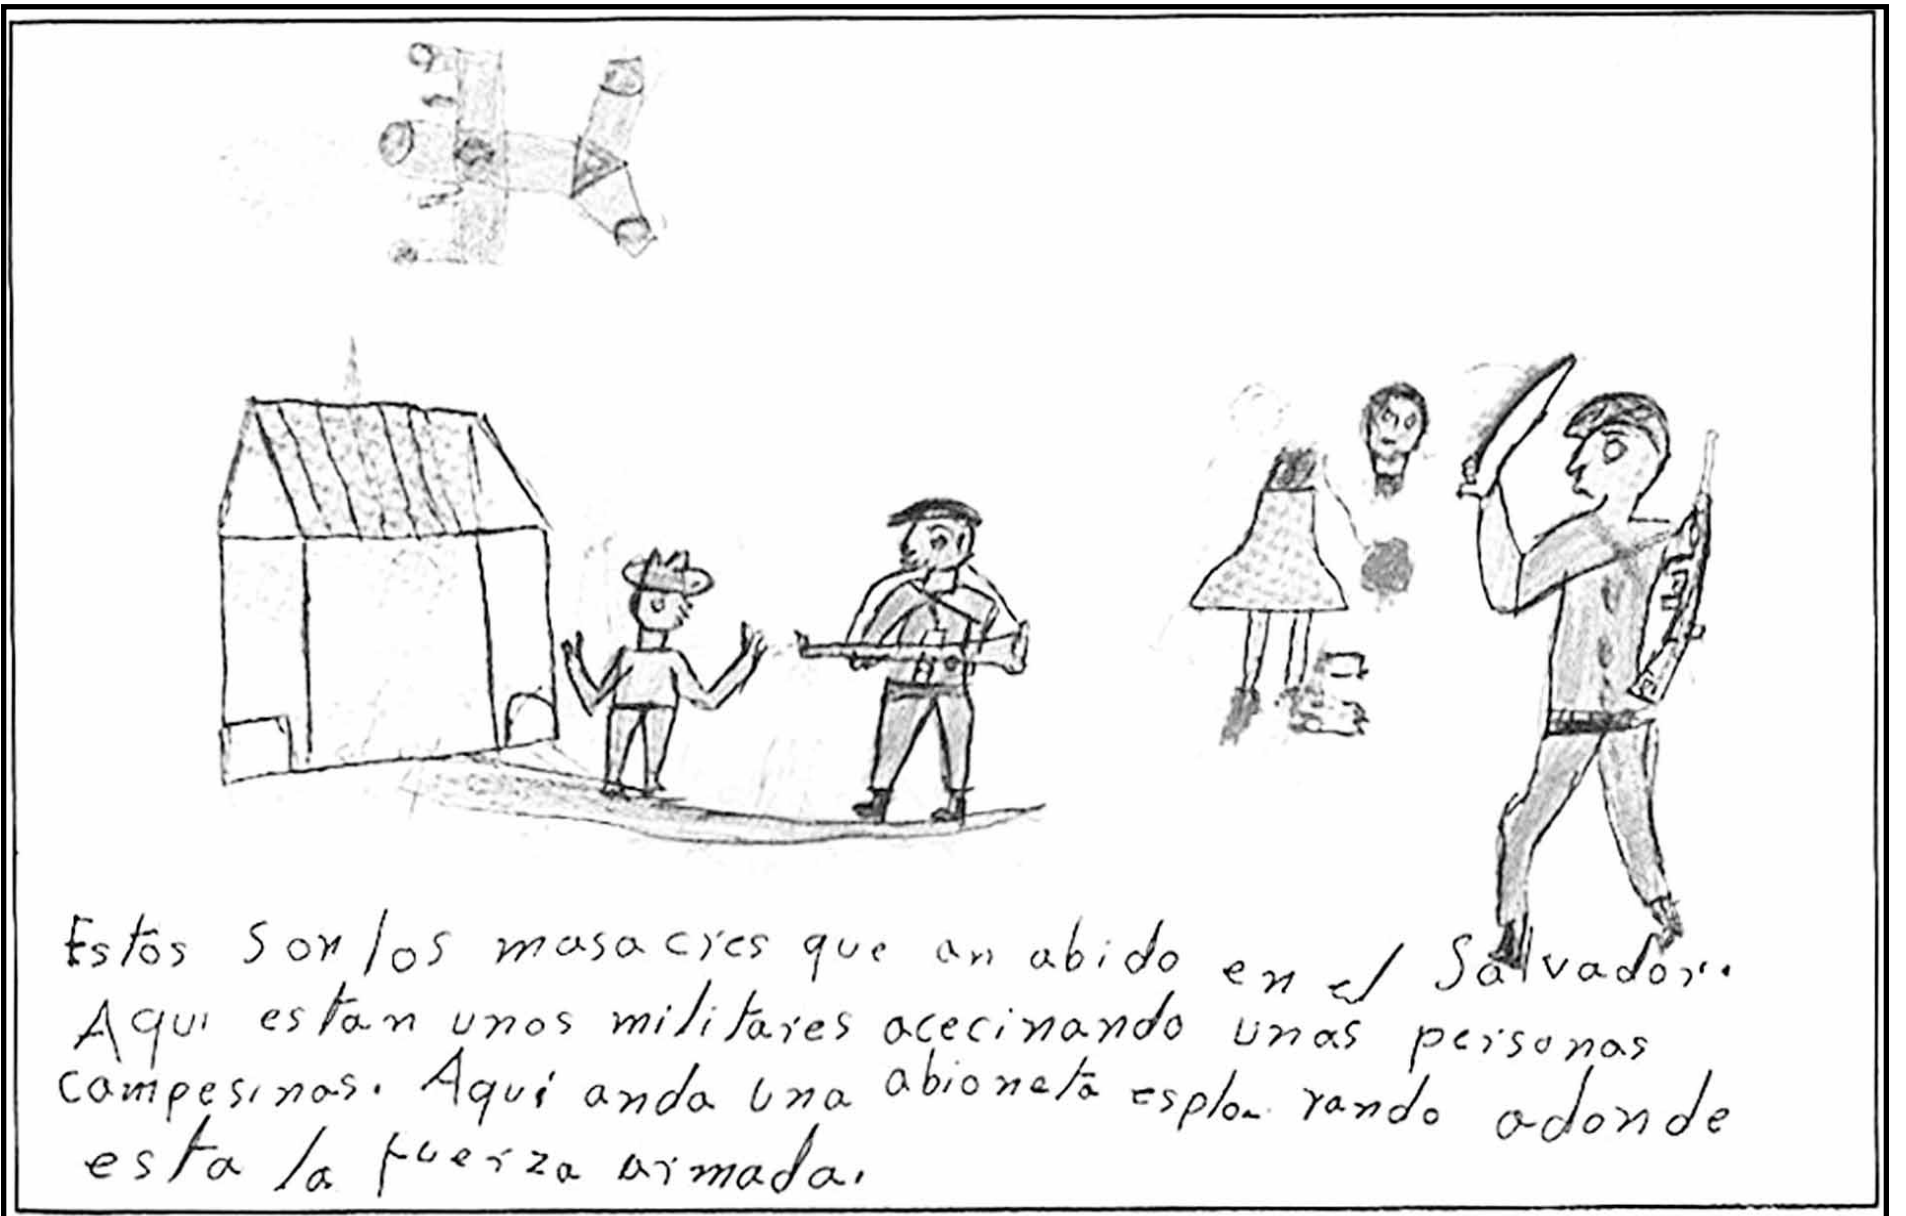 Estos son los masacres que an abido en el Salvador.
Aqui estan unos militares acecinando unas personas
campesinas. Aquí anda una abioneta esplorando adonde
esta la fuerza armada.